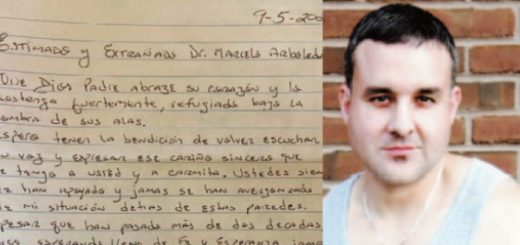 9-5-200
Estimado y Extrañado Dr. Marcelo Arboled
Que Dios Padre abraze su corazón y lo
sostenga fuertemente, refugiado bajo la
sombra de sus alas.
Espero tener la bendición de volver escuchar
su voz y expresar ese cariño sincero que
le tengo a usted y a Carmita. Ustedes siem
me han apoyado y jamas se han avergonzado
de mi situación detras de estas paredes.
pesar que han pasado más de dos decadas
esperando lleno de Fe y Esperanza